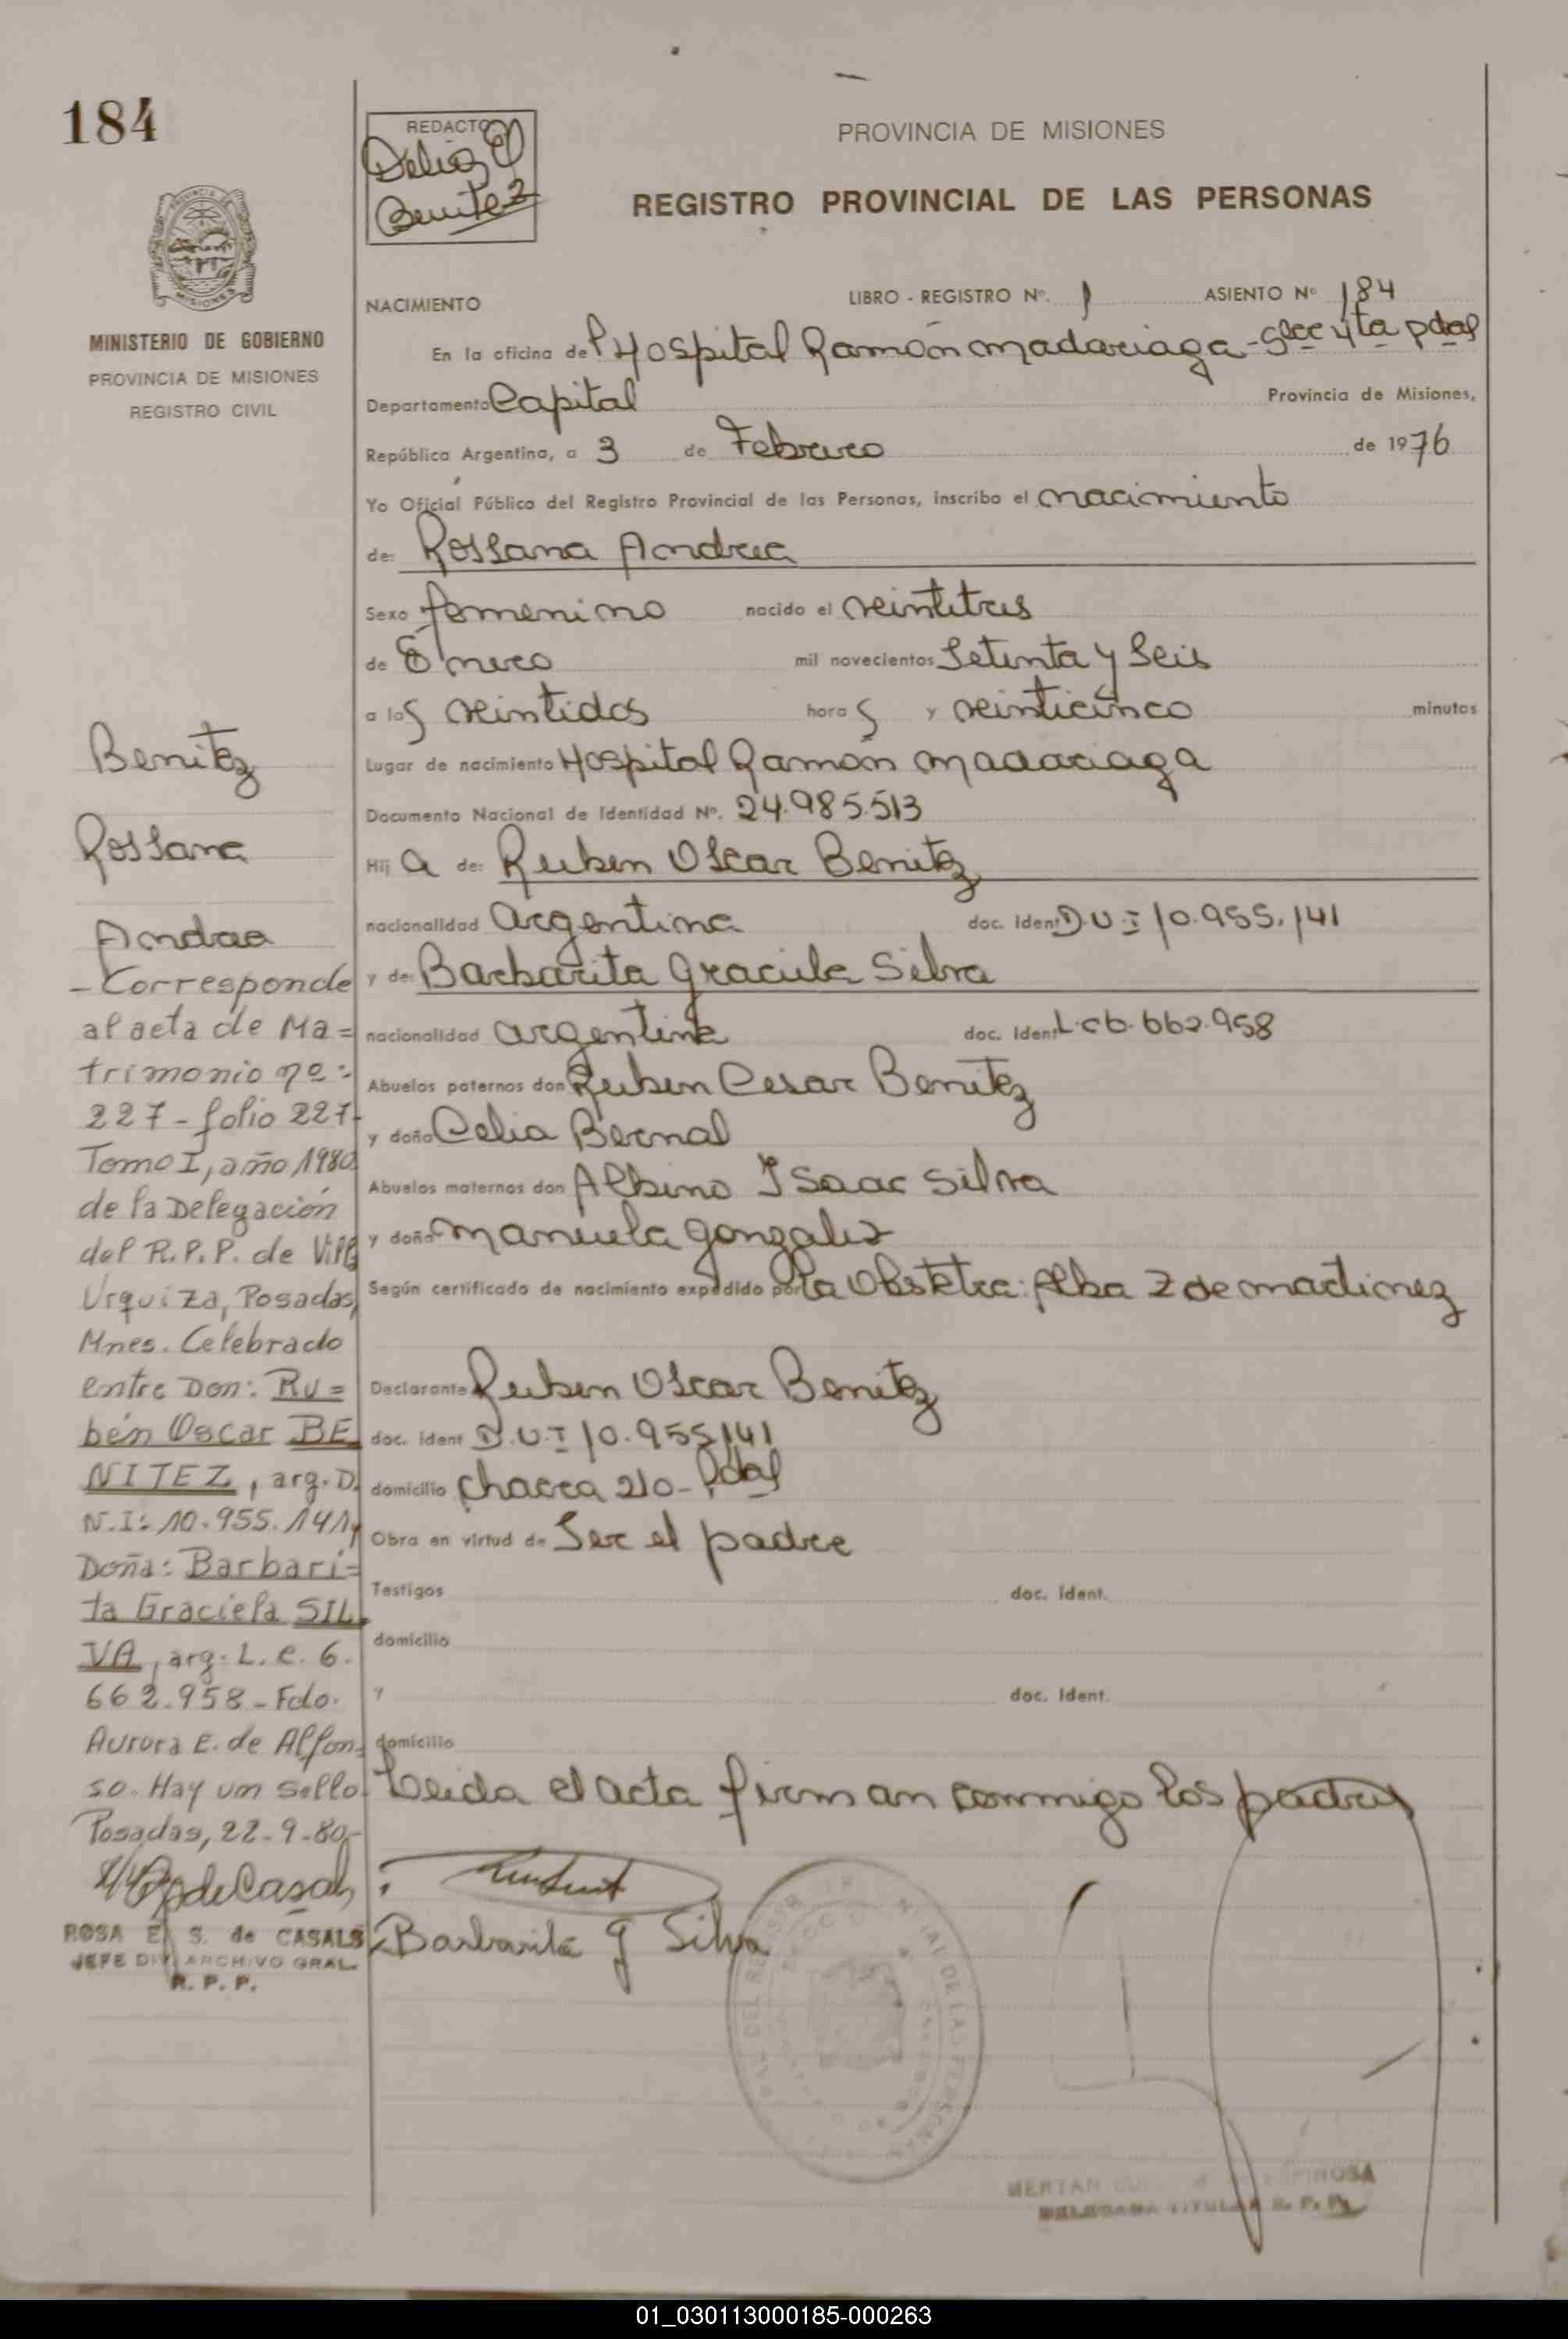 184
MINISTERIO DE GOBIERNO
PROVINCIA DE MISIONES
REGISTRO CIVIL
REDACTO
Delia
Benitez
PROVINCIA DE MISIONES
REGISTRO PROVINCIAL DE LAS PERSONAS
NACIMIENTO LIBRO - REGISTRO Nº. 1 ASIENTO Nº 184
En la oficina del Hospital Ramón Madariaga - Secc 4ta pdas
Departamento Capital Provincia de Misiones,
República Argentina, a 3 de Febrero de 1976
Yo Oficial Público del Registro Provincial de las Personas, inscribo el nacimiento
de: Rossana Andrea
Sexo femenino nacido el veintitres
de Enero mil novecientos Setenta y Seis
a los veintidos horas y veinticinco minutos
Lugar de nacimiento Hospital Ramón Madariaga
Documento Nacional de Identidad Nº. 24.985.513
Hij a de: Ruben Oscar Benitez
nacionalidad argentina doc. Ident D.U.I 10.955.141
y de: Barbarita Graciela Silva
nacionalidad argentina doc. Ident L.C 6.662.958
Abuelos paternos don Ruben Cesar Benitez
y doña Celia Bernal
Abuelos maternos don Albino Isaac Silva
y doña Manuela Gonzalez
Según certificado de nacimiento expedido por la Obstetra: Alba Z de Martinez
Declarante Ruben Oscar Benitez
doc. ident D.U.I 10.955141
domicilio Chacra 210 - Pdas
Obra en virtud de Ser el padre
Testigos doc. Ident.
domicilio
y doc. Ident.
domicilio
Leida el acta firman conmigo los padres
Barbarita G Silva
DELEGADA TITULAR R. P. P.
Benitez
Rossana
Andrea
- Corresponde
al acta de Ma=
trimonio nº:
227 - folio 227-
Tomo I, año 1980
de la Delegación
del R.P.P. de Villa
Urquiza, Posadas,
Mnes. Celebrado
entre Don: Ru=
bén Oscar BE
NITEZ, arg. D.
N.I: 10.955.141 y
Doña: Barbari=
ta Graciela SIL
VA, arg. L.C. 6.
662.958 - Fdo.
Aurora E. de Alfon
so. Hay un sello
Posadas, 22-9-80-
ROSA E. S. de CASALS
JEFE DIV. ARCHIVO GRAL.
R. P. P.
01_030113000185-000263